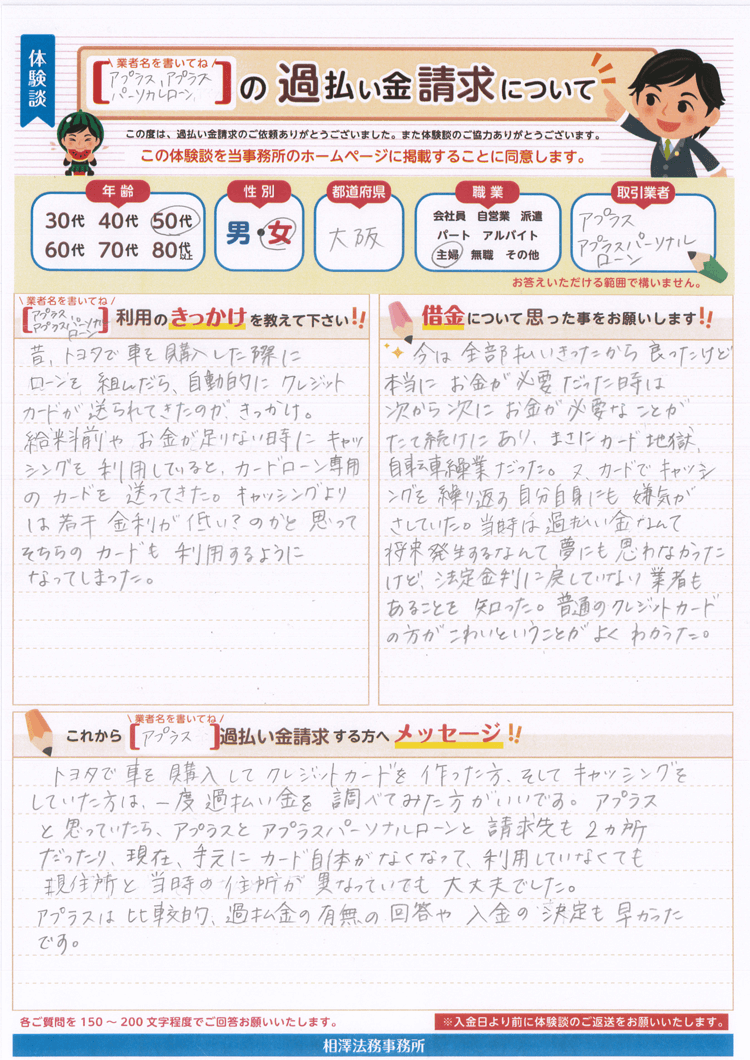 体験談
業者名を書いてね
アプラス、アプラス
パーソナルローン
の過払い金請求について
この度は、過払い金請求のご依頼ありがとうございました。また体験談のご協力ありがとうございます。
この体験談を当事務所のホームページに掲載することに同意します。
年齢
30代 40代 50代
60代 70代 80代以上
性別
男・女
都道府県
大阪
職業
会社員 自営業 派遣
パート アルバイト
主婦 無職 その他
取引業者
アプラス
アプラスパーソナル
ローン
お答えいただける範囲で構いません。
業者名を書いてね
アプラス
アプラスパーソナル
ローン
利用のきっかけを教えて下さい!!
昔、トヨタで車を購入した際に
ローンを組んだら、自動的にクレジット
カードが送られてきたのが、きっかけ。
給料前やお金が足りない時にキャッ
シングを利用していると、カードローン専用
のカードを送ってきた。キャッシングより
は若干金利が低い?のかと思って
そちらのカードも利用するように
なってしまった。
借金について思った事をお願いします!!
今は全部払いきったから良ったけど
本当にお金が必要だった時は
次から次にお金が必要なことが
たて続けにあり、まさにカード地獄、
自転車操業だった。又、カードでキャッシ
ングを繰り返す自分自身にも嫌気が
さしていた。当時は過払い金なんて
将来発生するなんて夢にも思わなかった
けど、法定金利に戻していない業者も
あることを知った。普通のクレジットカード
の方がこわいということがよくわかった。
業者名を書いてね
これから[アプラス]過払い金請求する方へメッセージ!!
トヨタで車を購入してクレジットカードを作った方、そしてキャッシングを
していた方は、一度過払い金を調べてみた方がいいです。アプラス
と思っていたら、アプラスとアプラスパーソナルローンと請求先も2カ所
だったり、現在、手元にカード自体がなくなって、利用していなくても
現住所と当時の住所が異なっていても大丈夫でした。
アプラスは比較的、過払金の有無の回答や入金の決定も早かった
です。
各ご質問を150～200文字程度でご回答お願いいたします。
※入金日より前に体験談のご返送をお願いいたします。
相澤法務事務所